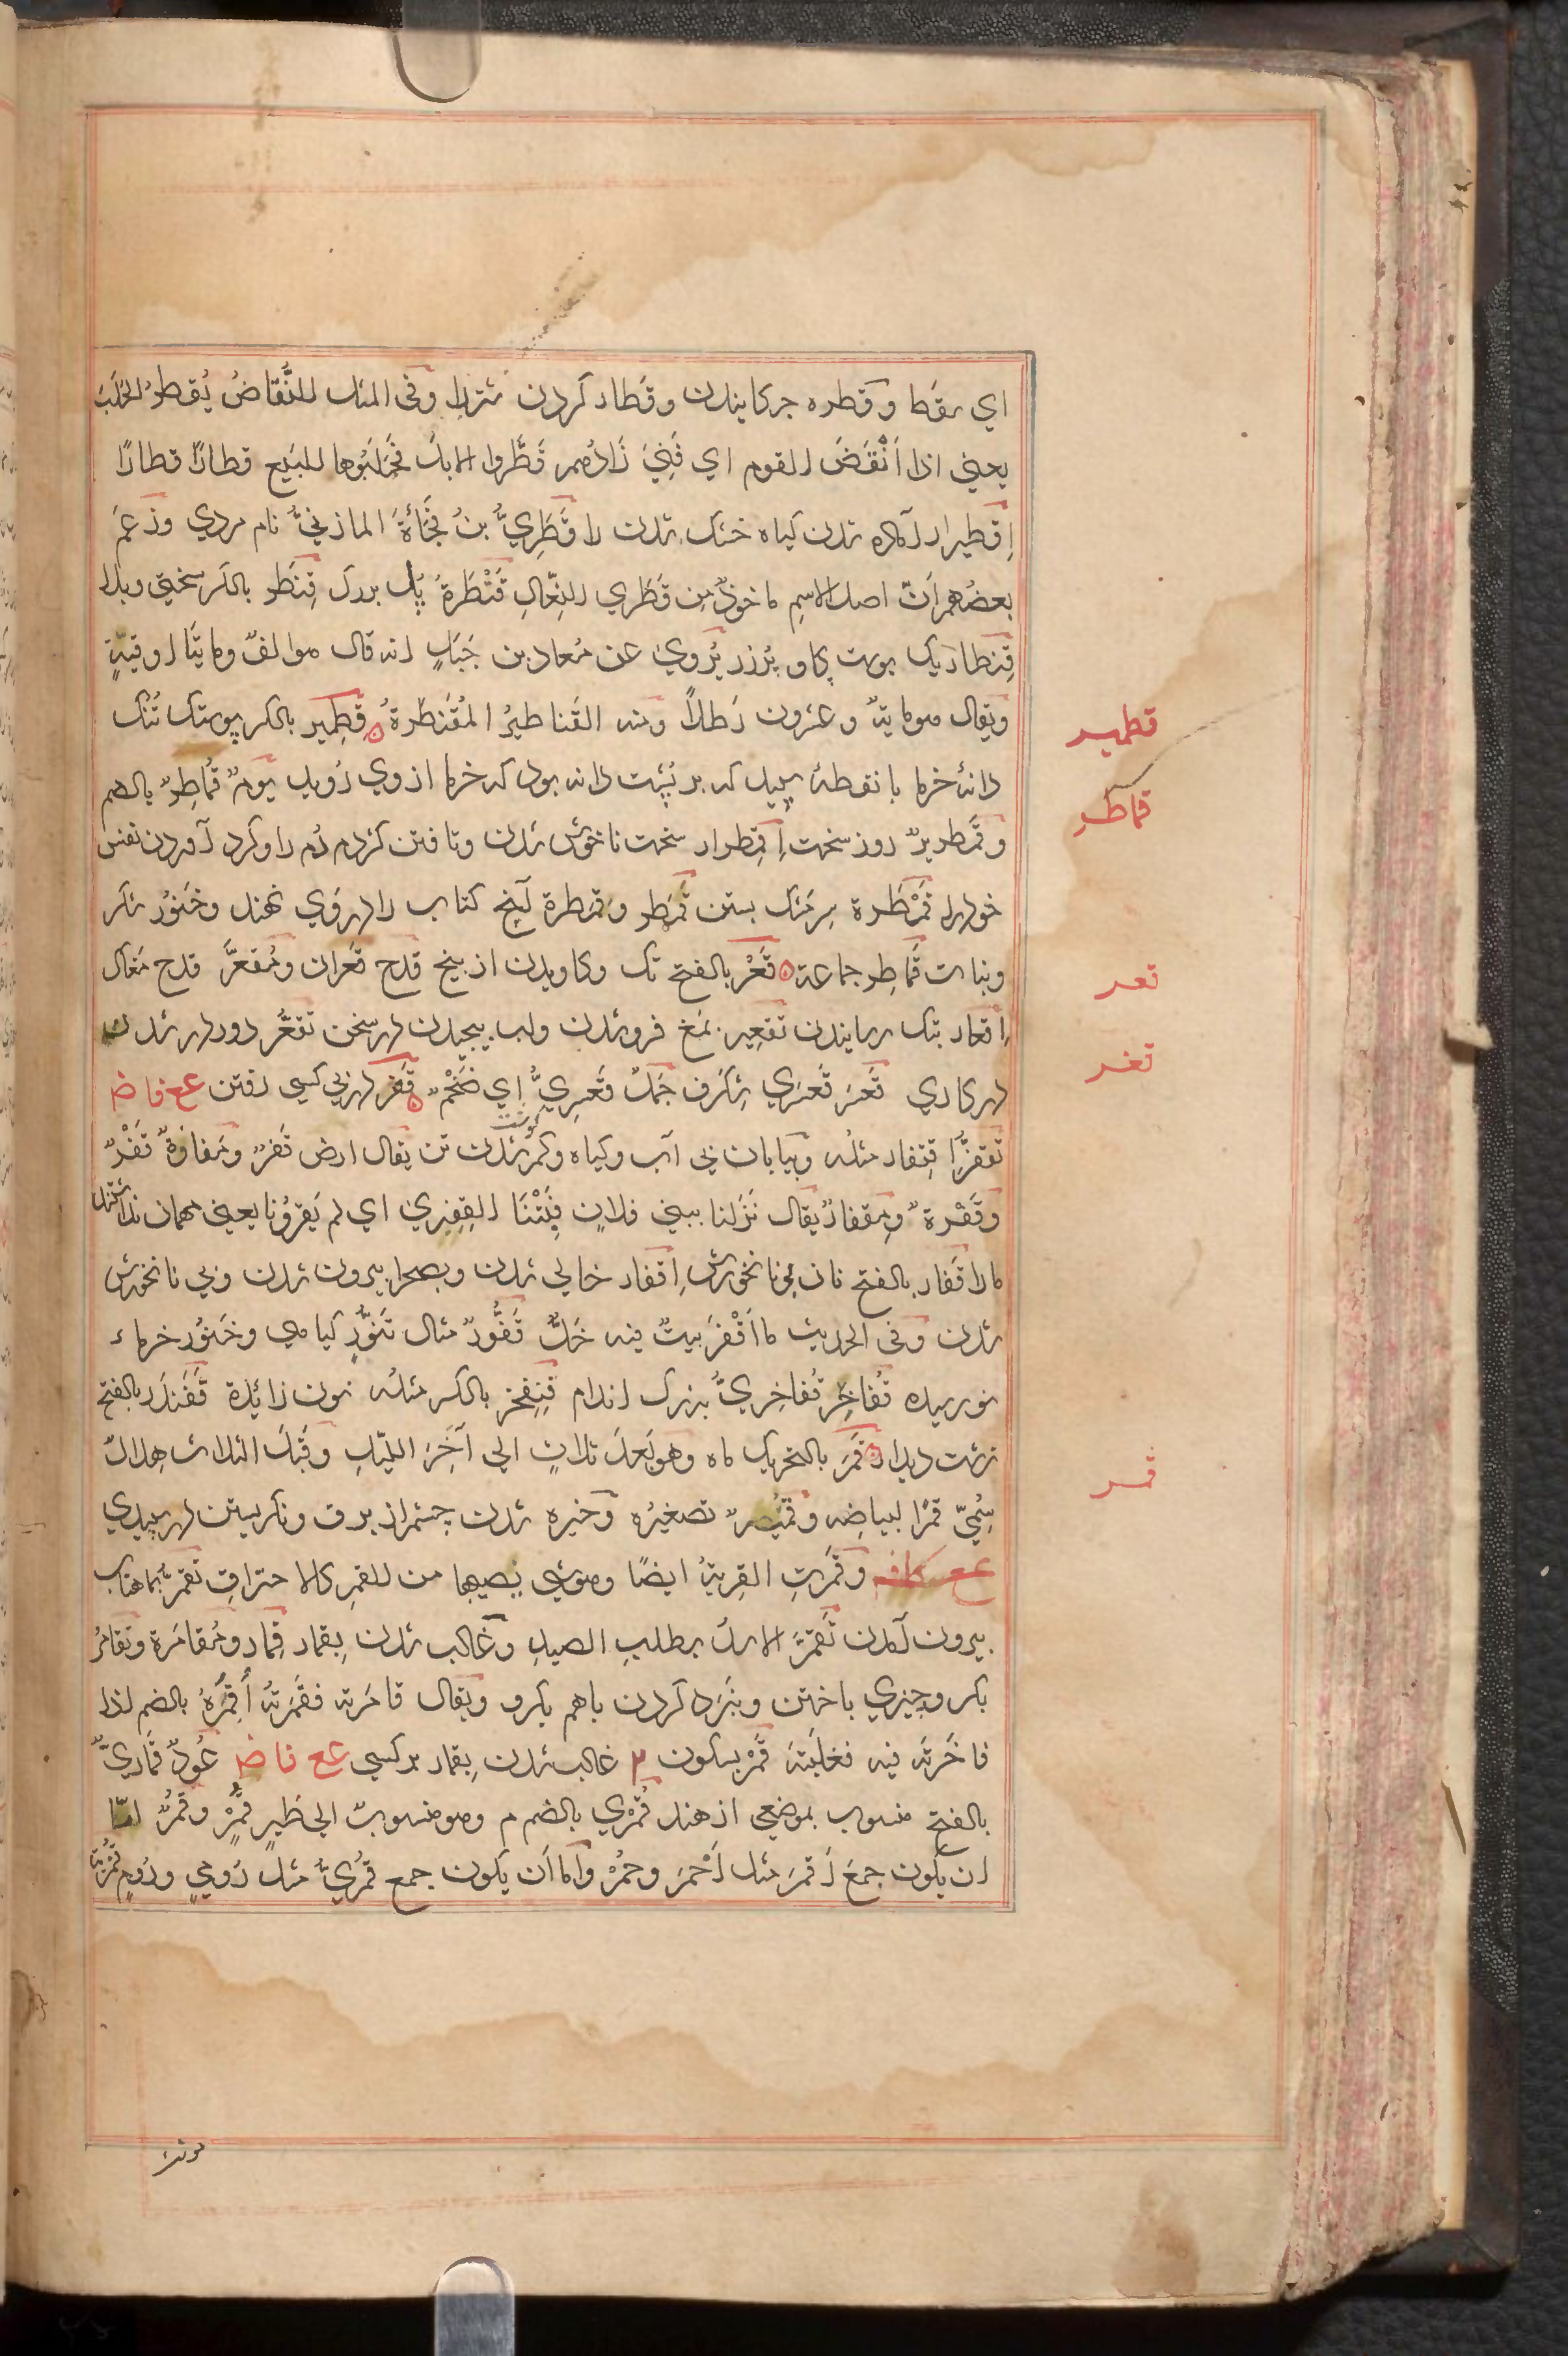 اي سقط وقطره چركانيدن وقطار كردن شترلرا وفى المثل النُّقاضُ يُقَطِّرُ الجَلَبَ
يعني اذا اَنْقَضَ القوم اي فَنِيَ زَادُهم قَطَّروا الابلَ فجَلَبُوها للبَيع قطارًا قطارًا
اِقطيرار آماده شدن كياه خشك شدن را قَطَرِيُّ بنُ فُجَائَةَ المازنيُّ نام مردي وزعمَ
بعضُهم اَنّ اصل الاسمِ ماخوذٌ مِن قَطَري النِّعالِ قَنْطَرةُ پُل بزرك قِنطِر بالكسر سختي وبلا
قِنطار يك پوست كاو پُرزر يُروي عن مُعاذ بن جَبَلٍ انه قال هو الفٌ ومايتَا اوقيّةٍ
ويقال هو مايةٌ وعشرون رَطلاً ومنه القَناطيرُ المُقَنطَرةُ قِطمِير بالكسر پوستك تُنُك
دانهٔ خرما يا نقطهٔ سپيد كه بر پُشت دانه بود كه خرما از وي رُويد يومٌ قُماطِرٌ بالضم
وقَمطريرٌ روز سخت اِقمِطرار سخت ناخوش شدن وتافتن كژدم دُم را وكرد آوردن نفس
خود را قَمْطَرة سرِ مَشك بستن قِمَطر وقِمَطرة آنچ كتاب را در وي نهند وخَنوُر شكر
ونبات قَماطِر جماعة قَعْر بالفتح تك وكاويدن از بيخ قدح قَعران ومُقعَرٌ قدح مَغاك
اِقعار بتك رسانيدن تقعِير بمغ فروشدن ولب پيچيدن در سخن تقعُّر دور در شدن
در كاري قَعسَر قَعسَري شِكَرف جَمَلٌ قَعسَرِيٌّ اي ضَخْمٌ قَفر در پي كسي رفتن ع ع فا ض
تقفُّر اِقتِفار مثلُه وبيابان بي آب وكياه وكم كوشت شدن تن يقال ارض قَفرٌ ومَفازةٌ قَفْرٌ
وقَفْرةٌ ومِقفارٌ يقال نَزَلنا ببني فلانٍ فبِتْنَا القِفري اي لم يَقرُونا يعني مهمان نداشتند
مارا قَفار بالفتح نان بي نانخورش اِقفار خالي شدن وبصحرا بيرون شدن وبي نانخورش
شدن وفى الحديث ما اَقْفَرَ بيتٌ فيه خَلٌّ قَفُّورٌ مثال تَنُّورٍ كياهي وخَنوُر خرماء
نورسيده قُفاخِر قُفاخِريٌّ بزرك اندام قِنفَخر بالكسر مثلُه نون زائدة قَفَندَر بالفتح
زشت ديدار قَمَر بالتحريك ماه وهو بَعدَ ثلاثٍ الي آخِرَ الليلِ وقَبلَ الثلاث هِلالٌ
سُمّيَ قمرًا لبياضِه وقُمَيرٌ تصغيرُه وخيره شدن چشم از برف ونكريستن در سپيدي
ع ع كا ف وقَمَرتِ القِربةُ ايضًا وهو شي يُصيبها من القمر كالاحتراقِ تَقمُّر بماهتاب
بيرون آمدن تَقَمَّرَ الاسدُ بطلبِ الصيد وغالب شدن بِقمار قِمار ومُقامَرة وتَقامُر
بكرو چيزي باختن ونبَرد كردن باهم بكرو ويقال قامَرته فقَمَرتُه اُقمُرُهُ بالضم اذا
فاخَرته فيه فغلَبته قَمْر بسكون م غالب شدن بِقمار بر كسي ع ع فا ض عُودٌ قَماريٌّ
بالفتح منسوب بموضعي از هند قُمْري بالضم م وهو منسوبٌ الي طَيرٍ قُمْرٍ وقُمْرٌ امّا
ان يكون جمعَ اَقمرَ مثل اَحْمَر وحُمْر واما اَن يكون جمع قُمْريٍّ مثل رُوميٍ ورُومٍ قُمْرِيّة
قطمير
قماطر
قعر
قفر
قمر